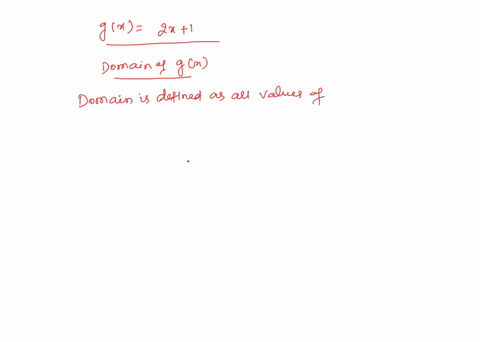 g(x) = 2x+1
Domain of g(x)
Domain is defined as all values of